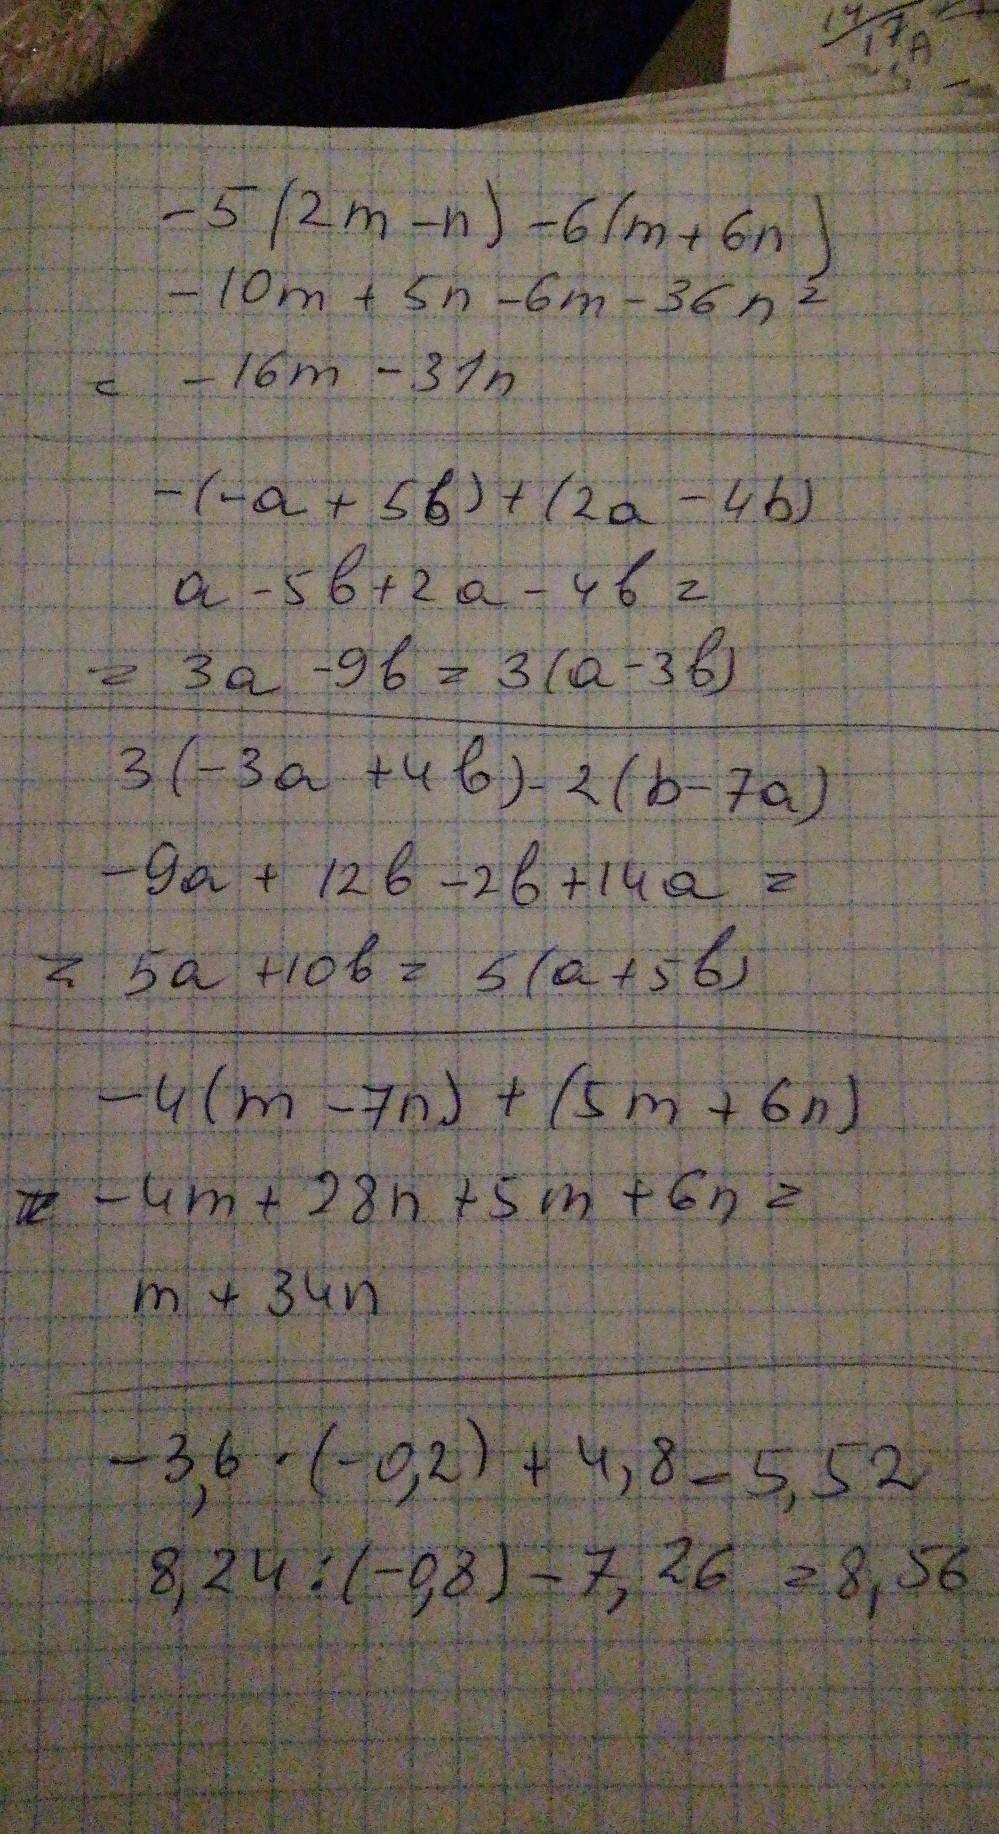 14/17A
-5(2m-n)-6(m+6n)
-10m+5n-6m-36n=
= -16m-31n
-(-a+5b)+(2a-4b)
a-5b+2a-4b=
= 3a-9b=3(a-3b)
3(-3a+4b)-2(b-7a)
-9a+12b-2b+14a=
= 5a+10b=5(a+5b)
-4(m-7n)+(5m+6n)
= -4m+28n+5m+6n=
m+34n
-3,6·(-0,2)+4,8=5,52
8,24:(-0,8)-7,26=8,56